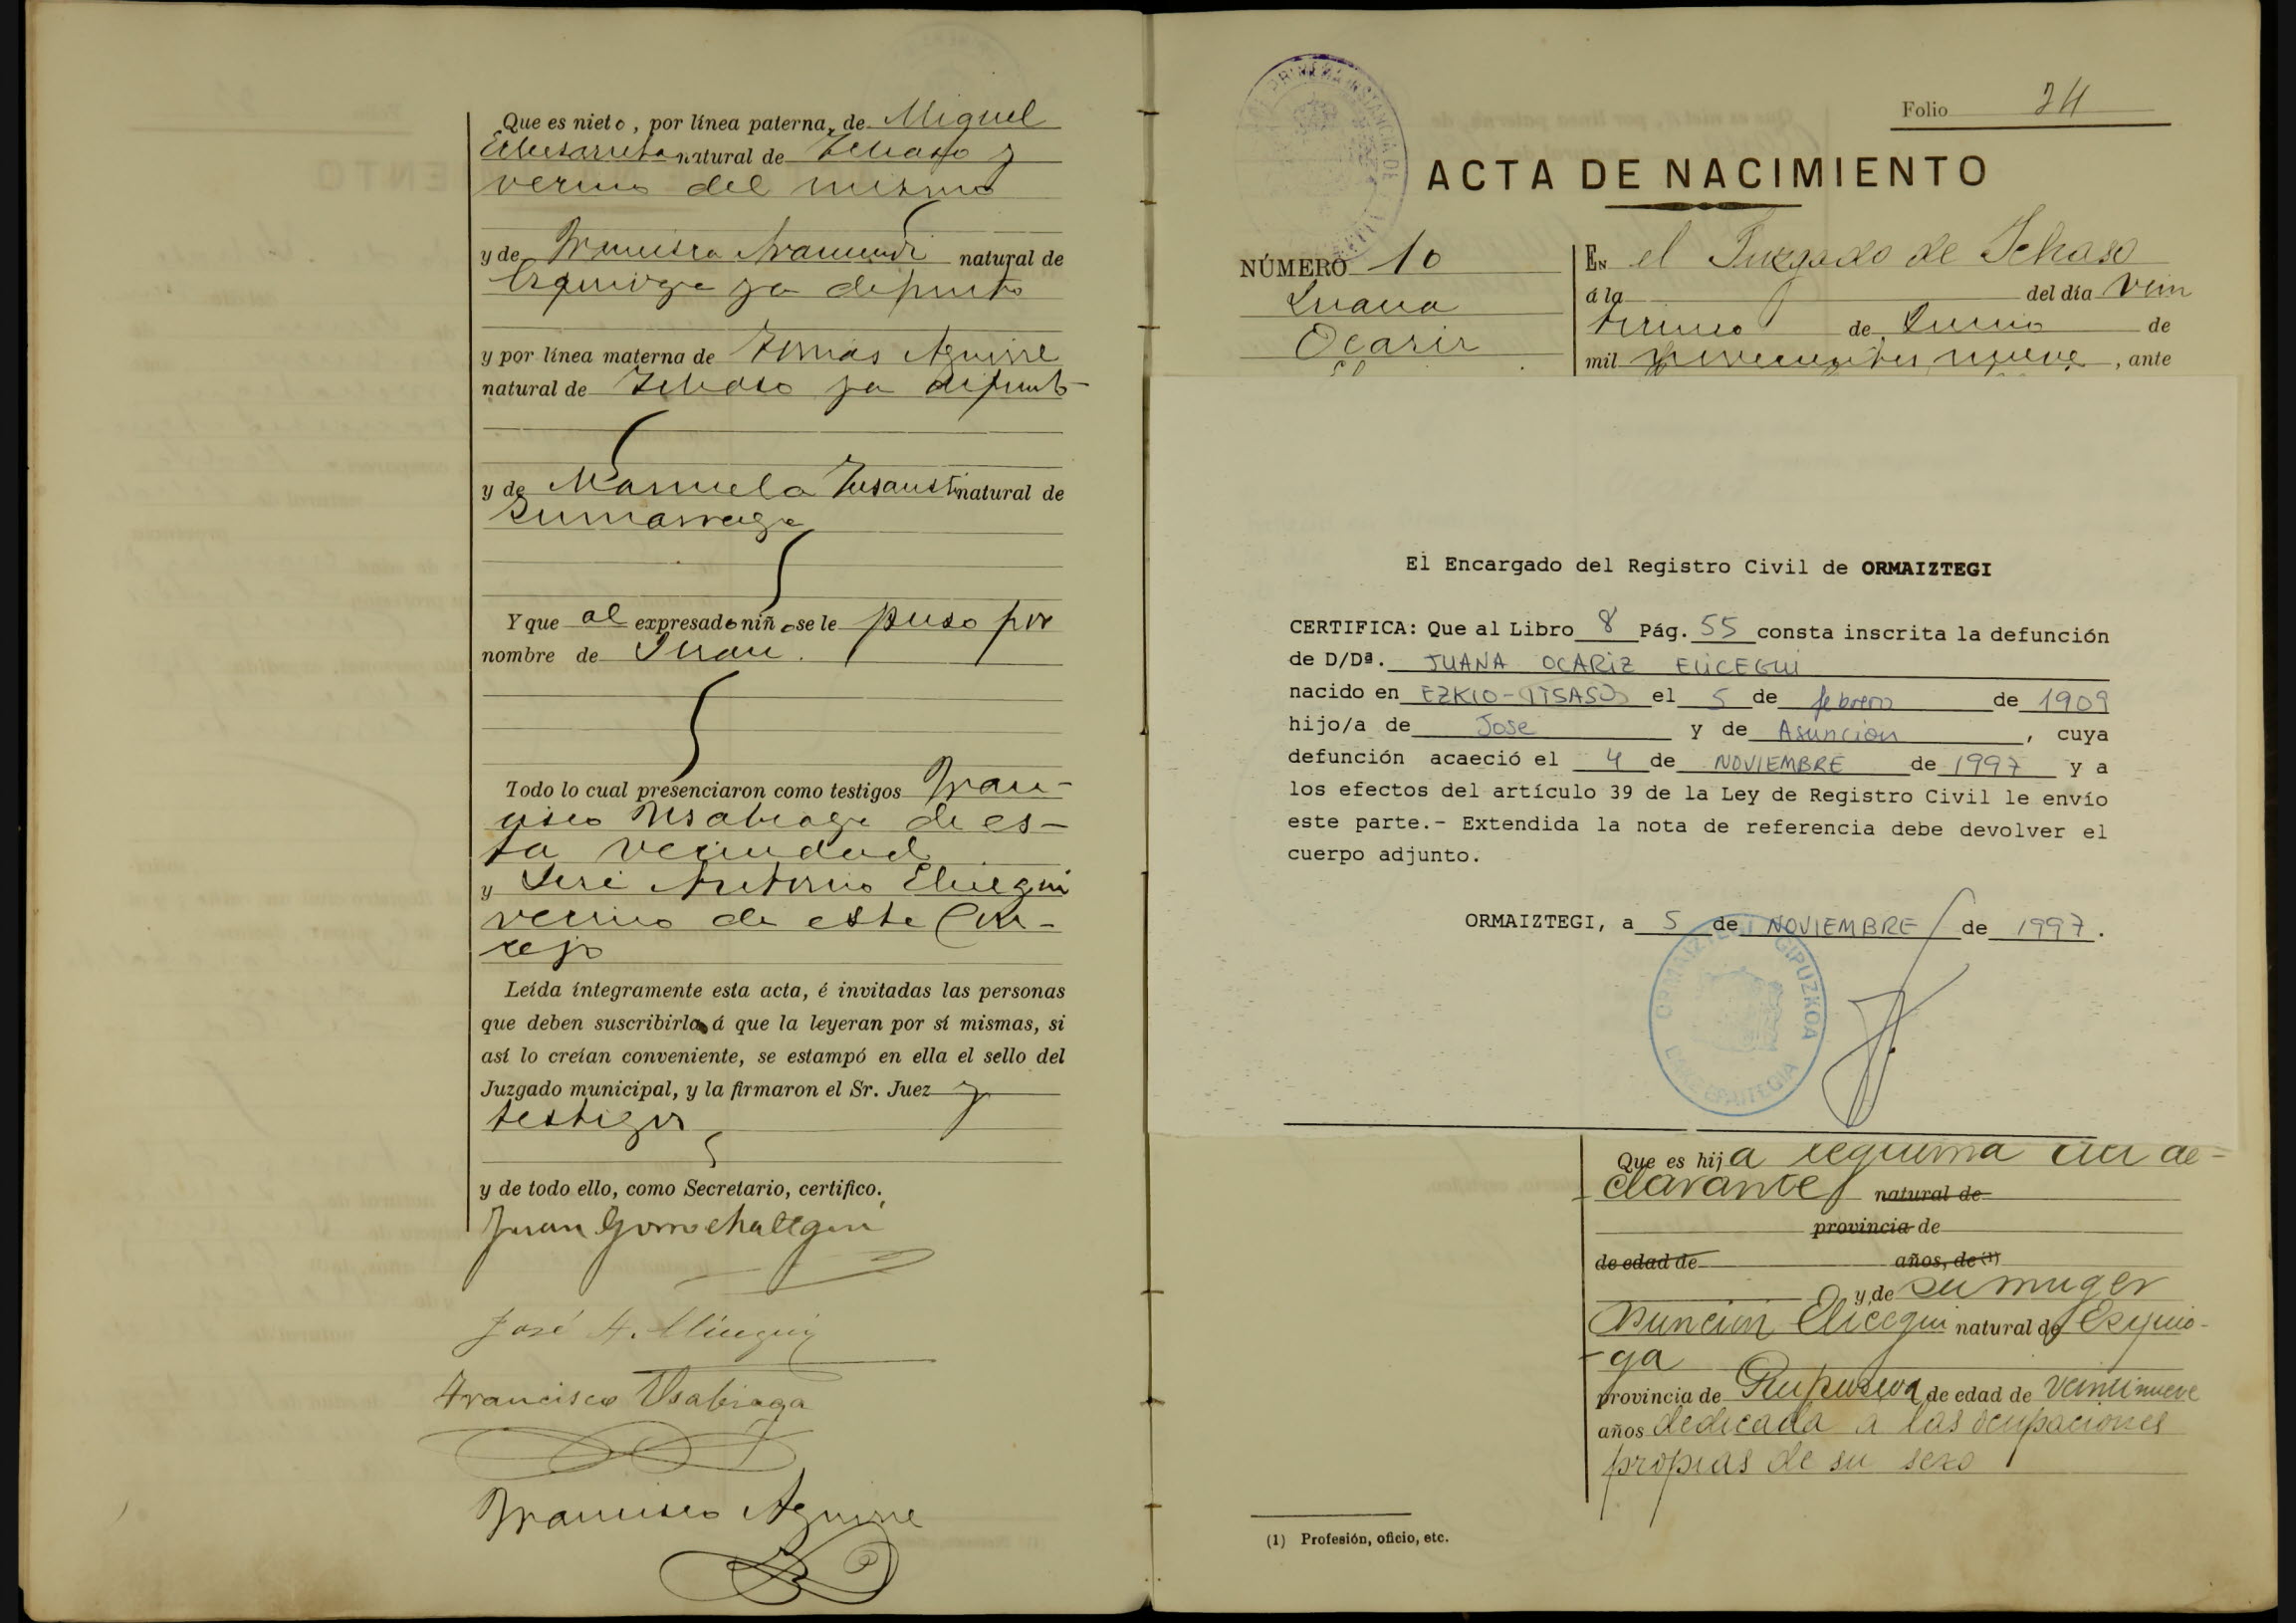 Que es nieto, por línea paterna, de Miguel
natural de Ichaso y
vecino del mismo
y de Francisca Aramendi natural de
Ezquioga ya difunta
y por línea materna de Tomás Aguirre
natural de Ichaso ya difunto
y de Manuela natural de
Zumarraga
Y que al expresado niño se le puso por
nombre de Juan.
Todo lo cual presenciaron como testigos Fran-
cisco Usabiaga de es-
ta vecindad
y José Antonio Elicegui
vecino de este Con-
cejo
Leída íntegramente esta acta, é invitadas las personas
que deben suscribirla á que la leyeran por sí mismas, si
así lo creían conveniente, se estampó en ella el sello del
Juzgado municipal, y la firmaron el Sr. Juez y
testigos
y de todo ello, como Secretario, certifico.
Juan Gorrochategui
José A. Elicegui
Francisco Usabiaga
Francisco Aguirre
Folio 24
ACTA DE NACIMIENTO
NÚMERO 10
Juana
Ocariz
EN el Juzgado de Ichaso
á la del día vein
ticinco de Junio de
mil novecientos nueve, ante
El Encargado del Registro Civil de ORMAIZTEGI
CERTIFICA: Que al Libro 8 Pág. 55 consta inscrita la defunción
de D/Dª. JUANA OCARIZ ELICEGUI
nacido en EZKIO-ITSASO el 5 de febrero de 1909
hijo/a de Jose y de Asuncion, cuya
defunción acaeció el 4 de NOVIEMBRE de 1997 y a
los efectos del artículo 39 de la Ley de Registro Civil le envío
este parte.- Extendida la nota de referencia debe devolver el
cuerpo adjunto.
ORMAIZTEGI, a 5 de NOVIEMBRE de 1997.
ORMAIZTEGI GIPUZKOA
EPAITEGIA
Que es hija legitima del de-
clarante natural de
provincia de
de edad de años, de (1)
y de su muger
Asuncion Elicegui natural de Ezquio-
ga
provincia de Guipuzcoa de edad de veintinueve
años dedicada a las ocupaciones
propias de su sexo
(1) Profesión, oficio, etc.